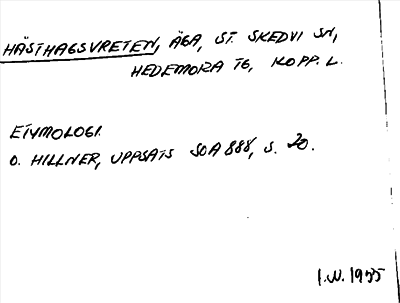 HÄSTHAGSVRETEN, ÄGA, ST. SKEDVI SN,
HEDEMORA TG, KOPP. L.
ETYMOLOGI.
O. HILLNER, UPPSATS SOA 888, S. 20.
1955